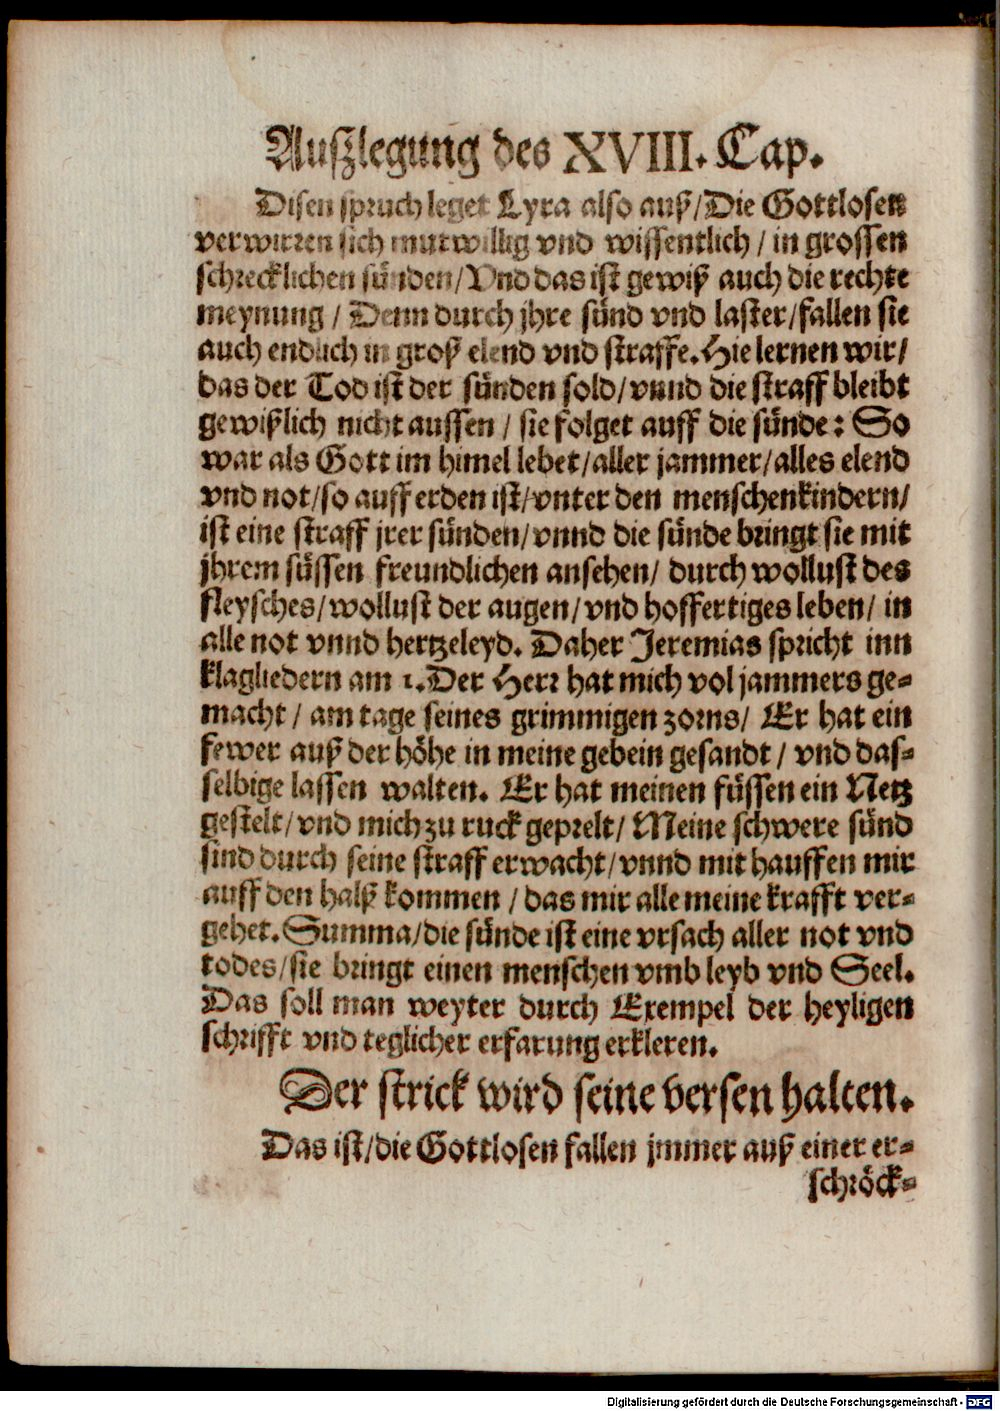 Auſzlegung des XVIII. Cap.
Diſen ſpruch leget Lyra alſo auß/Die Gottloſen
verwirren ſich mutwillig vnd wiſſentlich / in groſſen
ſchrecklichen ſünden/Vnd das iſt gewiß auch die rechte
meynung / Denn durch jhre ſünd vnd laſter/fallen ſie
auch endlich in groß elend vnd ſtraffe. Hie lernen wir/
das der Tod iſt der ſünden ſold/vnnd die ſtraff bleibt
gewißlich nicht auſſen / ſie folget auff die ſünde: So
war als Gott im himel lebet/aller jammer/alles elend
vnd not/ſo auff erden iſt/vnter den menſchenkindern/
iſt eine ſtraff jrer ſünden/vnnd die ſünde bringt ſie mit
jhrem ſüſſen freundlichen anſehen/ durch wolluſt des
fleyſches/wolluſt der augen/vnd hoffertiges leben/ in
alle not vnnd hertzeleyd. Daher Jeremias ſpricht inn
klagliedern am 1. Der Herr hat mich vol jammers ge-
macht / am tage ſeines grimmigen zorns/ Er hat ein
fewer auß der höhe in meine gebein geſandt / vnd das-
ſelbige laſſen walten. Er hat meinen füſſen ein Netz
geſtelt/vnd mich zu ruck geprelt/ Meine ſchwere ſünd
ſind durch ſeine ſtraff erwacht/vnnd mit hauffen mir
auff den halß kommen / das mir alle meine krafft ver-
gehet. Summa/die ſünde iſt eine vrſach aller not vnd
todes/ſie bringt einen menſchen vmb leyb vnd Seel.
Das ſoll man weyter durch Exempel der heyligen
ſchrifft vnd teglicher erfarung erkleren.
Der ſtrick wird ſeine verſen halten.
Das iſt/die Gottloſen fallen jmmer auß einer er-
ſchröck-
Digitalisierung gefördert durch die Deutsche Forschungsgemeinschaft - DFG